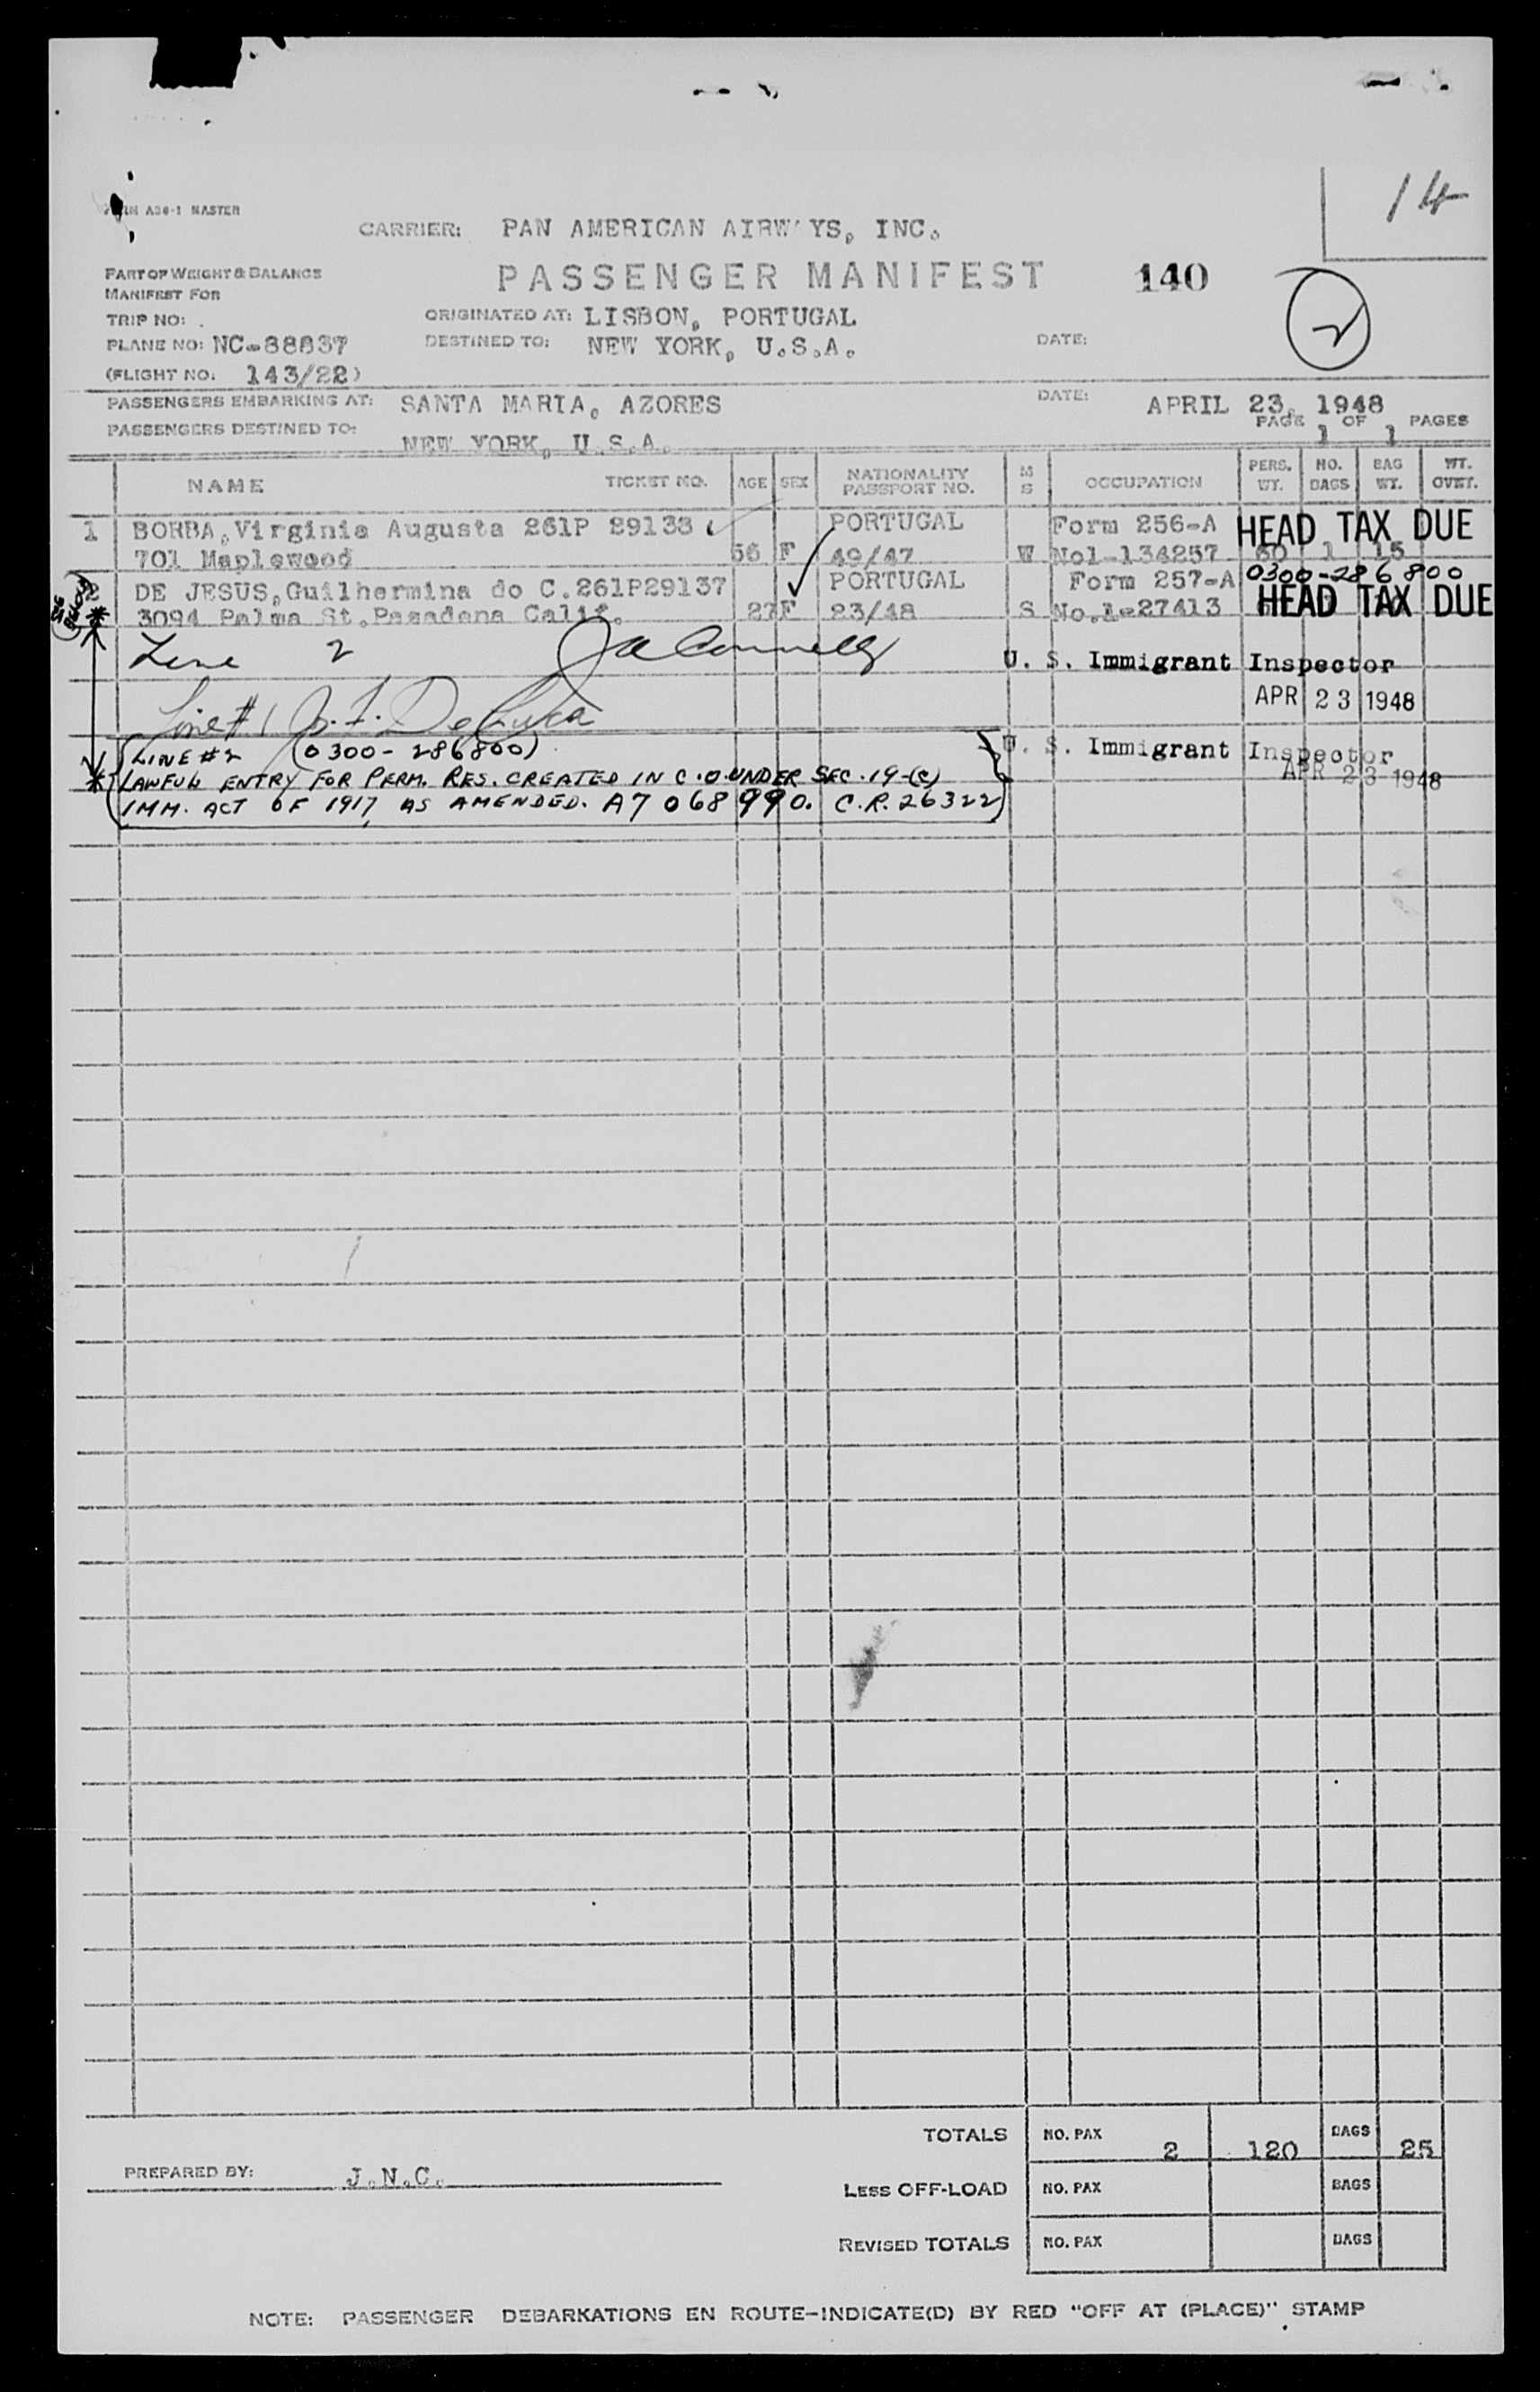 14
FORM A36-1 MASTER
CARRIER: PAN AMERICAN AIRWAYS, INC.
PART OF WEIGHT & BALANCE
PASSENGER MANIFEST 140
MANIFEST FOR
TRIP NO:
ORIGINATED AT: LISBON, PORTUGAL
2
PLANE NO: NC-88837
DESTINED TO: NEW YORK, U.S.A. DATE:
(FLIGHT NO: 143/22)
PASSENGERS EMBARKING AT: SANTA MARIA, AZORES DATE: APRIL 23, 1948
PASSENGERS DESTINED TO: NEW YORK, U.S.A. PAGE 1 OF 1 PAGES
NAME TICKET NO. AGE SEX NATIONALITY PASSPORT NO. M S OCCUPATION PERS. WT. NO. BAGS BAG WT. WT. OVWT.
1 BORBA, Virginia Augusta 261P 29133 PORTUGAL Form 256-A HEAD TAX DUE
701 Maplewood 56 F 49/47 W No1-134257 60 1 15
2 DE JESUS, Guilhermina do C. 261P29137 PORTUGAL Form 257-A 0300-286800
SEE BELOW * 3094 Palma St. Pasadena Calif. 27 F 23/48 S No.1-27413 HEAD TAX DUE
Line 2 J A Connelly U. S. Immigrant Inspector
APR 23 1948
Line #1 DeLuca
LINE #2 (0300-286800) U. S. Immigrant Inspector
* LAWFUL ENTRY FOR PERM. RES. CREATED IN C.O. UNDER SEC. 19-(C) APR 23 1948
IMM. ACT OF 1917, AS AMENDED. A7 068 990. C.R. 26322
TOTALS NO. PAX 2 120 BAGS 25
PREPARED BY: J.N.C.
LESS OFF-LOAD NO. PAX BAGS
REVISED TOTALS NO. PAX BAGS
NOTE: PASSENGER DEBARKATIONS EN ROUTE-INDICATE(D) BY RED "OFF AT (PLACE)" STAMP